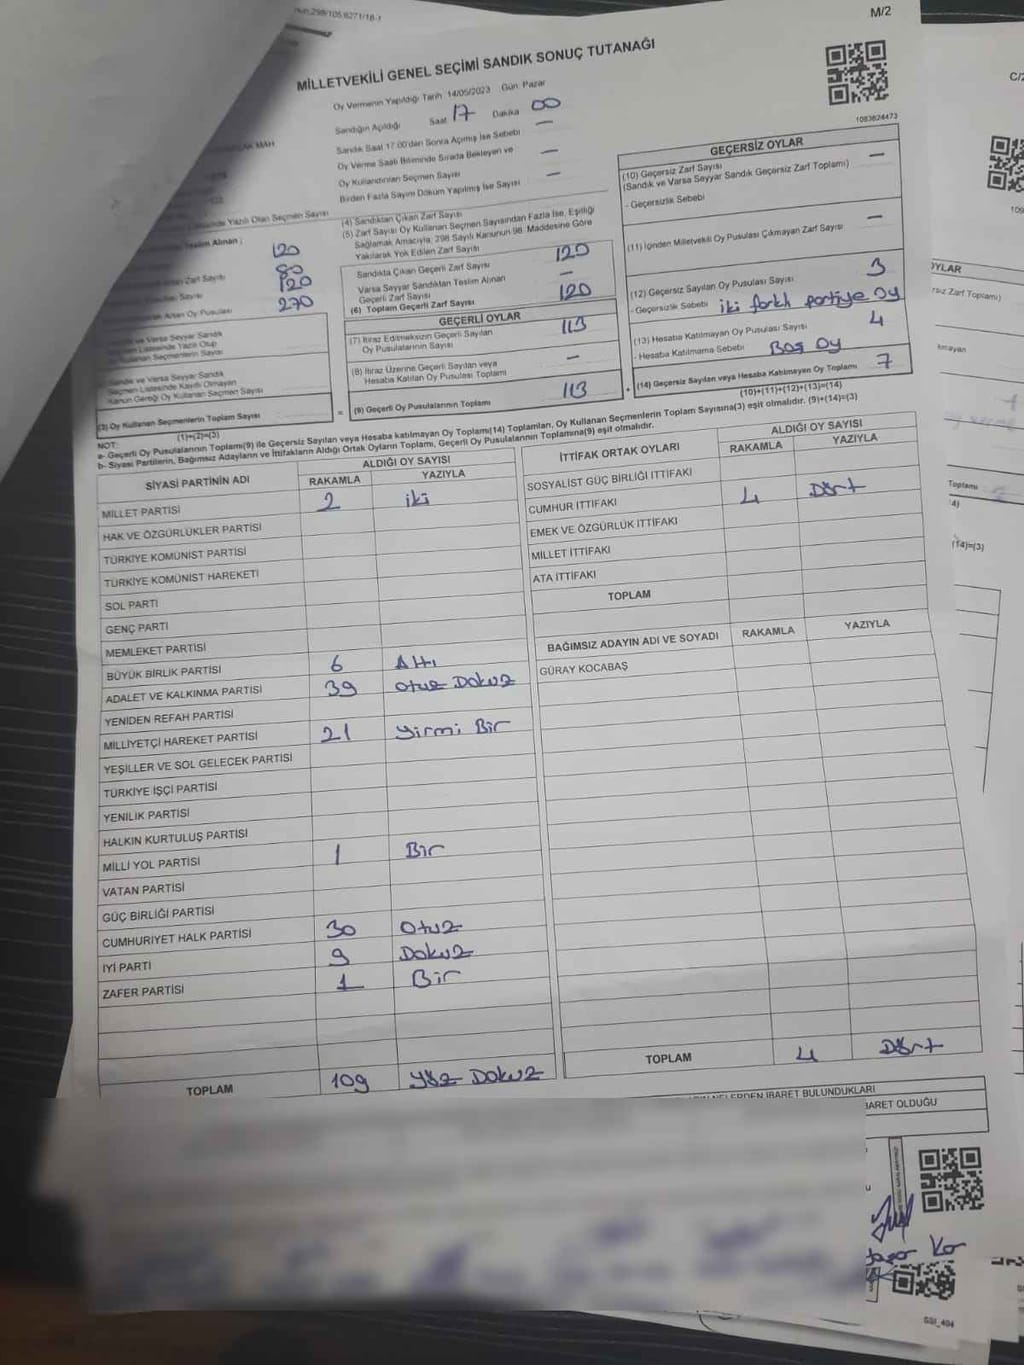 M/2
MİLLETVEKİLİ GENEL SEÇİMİ SANDIK SONUÇ TUTANAĞI
Oy Vermenin Yapıldığı Tarih 14/05/2023 Gün Pazar
Sandığın Açıldığı Saat 17 Dakika 00
Sandık Saat 17.00'den Sonra Açılmış İse Sebebi —
Oy Verme Saati Bitiminde Sırada Bekleyen ve
Oy Kullandırılan Seçmen Sayısı —
Birden Fazla Sayım Döküm Yapılmış İse Sayısı —
1083624473
Yazılı Olan Seçmen Sayısı
Teslim Alınan :
120
120
270
(4) Sandıktan Çıkan Zarf Sayısı
(5) Zarf Sayısı Oy Kullanan Seçmen Sayısından Fazla İse, Eşitliği
Sağlamak Amacıyla, 298 Sayılı Kanunun 98. Maddesine Göre
Yakılarak Yok Edilen Zarf Sayısı
Sandıkta Çıkan Geçerli Zarf Sayısı 120
Varsa Seyyar Sandıktan Teslim Alınan
Geçerli Zarf Sayısı —
(6) Toplam Geçerli Zarf Sayısı 120
GEÇERLİ OYLAR
(7) İtiraz Edilmeksizin Geçerli Sayılan
Oy Pusulalarının Sayısı 113
(8) İtiraz Üzerine Geçerli Sayılan veya
Hesaba Katılan Oy Pusulası Toplamı —
(9) Geçerli Oy Pusulalarının Toplamı 113
GEÇERSİZ OYLAR
(10) Geçersiz Zarf Sayısı —
(Sandık ve Varsa Seyyar Sandık Geçersiz Zarf Toplamı)
- Geçersizlik Sebebi
(11) İçinden Milletvekili Oy Pusulası Çıkmayan Zarf Sayısı —
(12) Geçersiz Sayılan Oy Pusulası Sayısı 3
- Geçersizlik Sebebi iki farklı partiye oy
(13) Hesaba Katılmayan Oy Pusulası Sayısı 4
- Hesaba Katılmama Sebebi Boş Oy
(14) Geçersiz Sayılan veya Hesaba Katılmayan Oy Toplamı 7
(10)+(11)+(12)+(13)=(14)
Sandık ve Varsa Seyyar Sandık
Seçmen Listesinde Kayıtlı Olmayan
Kanun Gereği Oy Kullanan Seçmen Sayısı
(3) Oy Kullanan Seçmenlerin Toplam Sayısı
(1)+(2)=(3)
NOT:
a- Geçerli Oy Pusulalarının Toplamı(9) ile Geçersiz Sayılan veya Hesaba katılmayan Oy Toplamı(14) Toplamları, Oy Kullanan Seçmenlerin Toplam Sayısına(3) eşit olmalıdır. (9)+(14)=(3)
b- Siyasi Partilerin, Bağımsız Adayların ve İttifakların Aldığı Ortak Oyların Toplamı, Geçerli Oy Pusulalarının Toplamına(9) eşit olmalıdır.
SİYASİ PARTİNİN ADI ALDIĞI OY SAYISI
RAKAMLA YAZIYLA
MİLLET PARTİSİ 2 iki
HAK VE ÖZGÜRLÜKLER PARTİSİ
TÜRKİYE KOMÜNİST PARTİSİ
TÜRKİYE KOMÜNİST HAREKETİ
SOL PARTİ
GENÇ PARTİ
MEMLEKET PARTİSİ
BÜYÜK BİRLİK PARTİSİ 6 Altı
ADALET VE KALKINMA PARTİSİ 39 otuz Dokuz
YENİDEN REFAH PARTİSİ
MİLLİYETÇİ HAREKET PARTİSİ 21 yirmi Bir
YEŞİLLER VE SOL GELECEK PARTİSİ
TÜRKİYE İŞÇİ PARTİSİ
YENİLİK PARTİSİ
HALKIN KURTULUŞ PARTİSİ
MİLLİ YOL PARTİSİ 1 Bir
VATAN PARTİSİ
GÜÇ BİRLİĞİ PARTİSİ
CUMHURİYET HALK PARTİSİ 30 Otuz
İYİ PARTİ 9 Dokuz
ZAFER PARTİSİ 1 Bir
TOPLAM 109 yüz Dokuz
İTTİFAK ORTAK OYLARI ALDIĞI OY SAYISI
RAKAMLA YAZIYLA
SOSYALİST GÜÇ BİRLİĞİ İTTİFAKI
CUMHUR İTTİFAKI 4 Dört
EMEK VE ÖZGÜRLÜK İTTİFAKI
MİLLET İTTİFAKI
ATA İTTİFAKI
TOPLAM
BAĞIMSIZ ADAYIN ADI VE SOYADI RAKAMLA YAZIYLA
GÜRAY KOCABAŞ
TOPLAM 4 Dört
NELERDEN İBARET BULUNDUKLARI
İBARET OLDUĞU
(14)=(3)